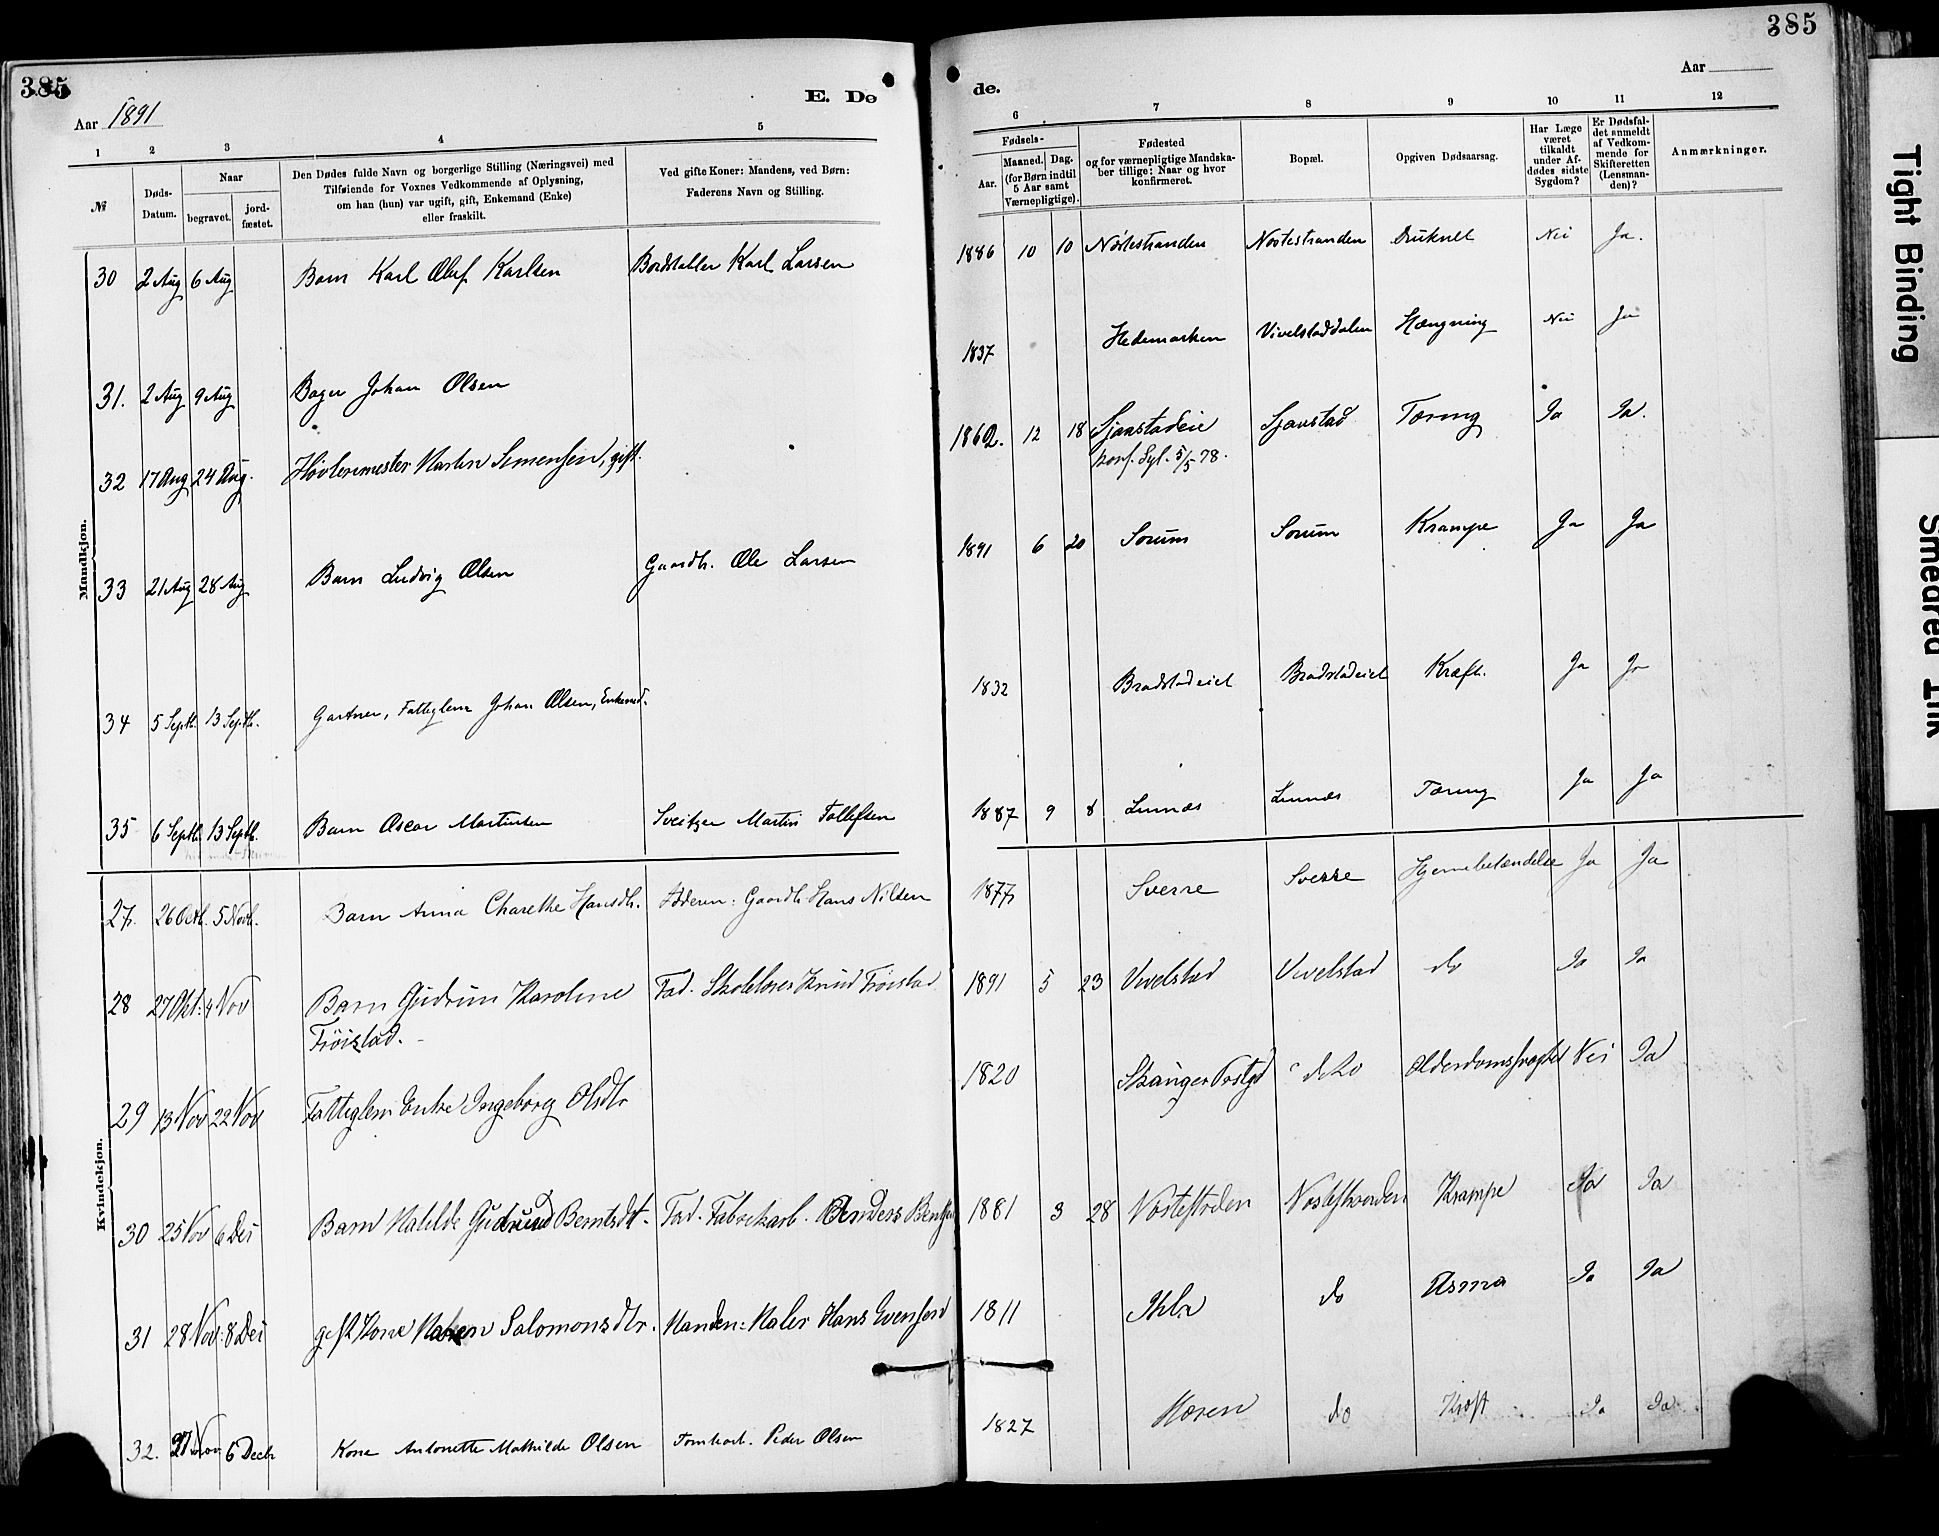 385
Aar 1891
E. Dø
1 2 3 4 5
№
Døds-
Datum.
Naar
begravet.
jord-
fæstet.
Den Dødes fulde Navn og borgerlige Stilling (Næringsvei) med
Tilføiende for Voxnes Vedkommende af Oplysning,
om han (hun) var ugift, gift, Enkemand (Enke)
eller fraskilt.
Ved gifte Koner: Mandens, ved Børn:
Faderens Navn og Stilling.
Mandkjøn.
30 2 Aug 6 Aug Barn Karl Oluf Karlsen Bordstabler Karl Larsen
31. 2 Aug 9 Aug Bager Johan Olsen
32 17 Aug 24 Aug. Høvlermester Martin Simensen, gift.
33 21 Aug 28 Aug Barn Ludvig Olsen Gaardb. Ole Larsen
34 5 Septb. 13 Septb. Gartner, Fattiglem Johan Olsen, Enkemd.
35 6 Septb. 13 Septb. Barn Oscar Martinsen Sveitzer Martin Tollefsen
Kvindekjøn.
27. 26 Octb. 5 Novb. Barn Anna Charethe Hansdtr. Faderen: Gaardb Hans Nilsen
28 27 Okt: 4 Nov Barn Gudrun Karoline Fad. Skolelærer Knud Frøistad
Frøistad.
29 13 Nov 22 Nov Fattiglem Enke Ingeborg Olsdtr
30 25 Nov 6 Des Barn Matilde Gudrund Berntsdt. Fad. Fabrikarb. Anders Bentsen
31 28 Nov: 8 Des gift Kone Maren Salomonsdtr. Manden: Maler Hans Evensen
32. 27 Nov 6 Decb Kone Antonette Mathilde Olsen Tomtearb. Peder Olsen
385
de.
Aar
6 7 8 9 10 11 12
Fødsels-
Aar.
Maaned. Dag.
(for Børn indtil
5 Aar samt
Værnepligtige).
Fødested
og for værnepligtige Mandska-
ber tillige: Naar og hvor
konfirmeret.
Bopæl.
Opgiven Dødsaarsag.
Har Læge
været
tilkaldt
under Af-
dødes sidste
Sygdom?
Er Dødsfal-
det anmeldt
af Vedkom-
mende for
Skifteretten
(Lensman-
den)?
Anmærkninger.
1886 10 10 Nøstestranden Nøstestranden Druknet Nei Ja.
1837 Hedemarken Vivelstaddalen Hængning Nei Ja
1862. 12 18 Sjaastadeie Sjaastad Tæring Ja Ja.
konf. Syl. 5/5 78.
1891 6 20 Sørum Sørum Krampe Ja Ja
1832 Bradstadeiet Bradstadeiet Kræft. Ja Ja
1887 9 8 Linnæs Linnæs Tæring Ja Ja
1877 Sverre Sverre Hjernebetændelse Ja Ja
1891 5 23 Vivelstad Vivelstad do Ja Ja
1820 Skanger Prstgd do Alderdomssvaghed Nei Ja
1881 3 28 Nøstestrden Nøstestranden Krampe Ja Ja
1811 do Asma Ja Ja
1827 do Kræft Ja Ja
Tight Binding
Smeared Ink